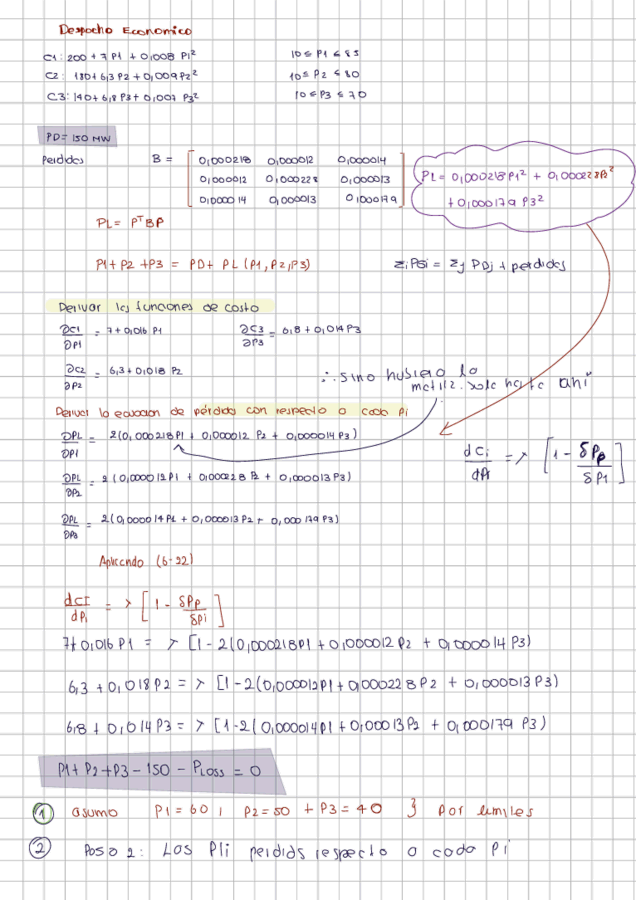 Despacho Economico
C1: 200 + 7 P1 + 0,008 P1² 10 ≤ P1 ≤ 85
C2: 180 + 6,3 P2 + 0,009 P2² 10 ≤ P2 ≤ 80
C3: 140 + 6,8 P3 + 0,007 P3² 10 ≤ P3 ≤ 70
PD = 150 MW
Perdidas B = [ 0,000218 0,000012 0,000014
0,000012 0,000228 0,000013
0,000014 0,000013 0,000179 ]
PL = 0,000218 P1² + 0,000228 P2²
+ 0,000179 P3²
PL = Pᵀ B P
P1 + P2 + P3 = PD + PL (P1, P2, P3) Σi PGi = Σj PDj + perdidas
Derivar las funciones de costo
∂C1/∂P1 = 7 + 0,016 P1 ∂C3/∂P3 = 6,8 + 0,014 P3
∂C2/∂P2 = 6,3 + 0,018 P2
∴ Si no hubiera la
matriz. solo hasta ahi
Derivar la ecuacion de pérdidas con respecto a cada Pi
∂PL/∂P1 = 2(0,000218 P1 + 0,000012 P2 + 0,000014 P3)
∂PL/∂P2 = 2 (0,000012 P1 + 0,000228 P2 + 0,000013 P3)
∂PL/∂P3 = 2(0,000014 P1 + 0,000013 P2 + 0,000179 P3)
dCi/dPi = λ [1 - δPp/δP1]
Aplicando (6-22)
dCI/dPi = λ [1 - δPp/δPi]
7 + 0,016 P1 = λ [1 - 2(0,000218 P1 + 0,000012 P2 + 0,000014 P3)
6,3 + 0,018 P2 = λ [1 - 2(0,000012 P1 + 0,000228 P2 + 0,000013 P3)
6,8 + 0,014 P3 = λ [1 - 2(0,000014 P1 + 0,00013 P2 + 0,000179 P3)
P1 + P2 + P3 - 150 - PLoss = 0
① asumo P1 = 60 ; P2 = 50 + P3 = 40 } Por limites
② Paso 2: Las Pli perdids respecto a cada Pi